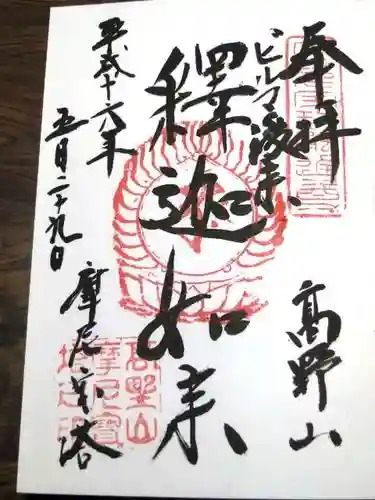 奉拝
ビルマ渡来
釋迦如来
高野山
平成十六年
五月二十九日
摩尼宝塔
高野山
摩尼寶